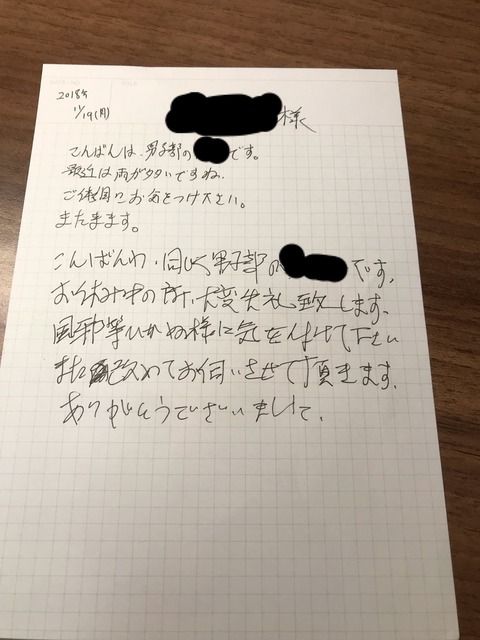 2018年
11/19(月)
様
こんばんは、男子部の
です。
最近は雨が多いですね。
ご体調にお気をつけ下さい。
また来ます。
こんばんわ、同じく男子部の
です。
お休みの所、大変失礼致します。
風邪等ひかぬ様に気を付けて下さい
また改めてお伺いさせて頂きます。
ありがとうございまして。